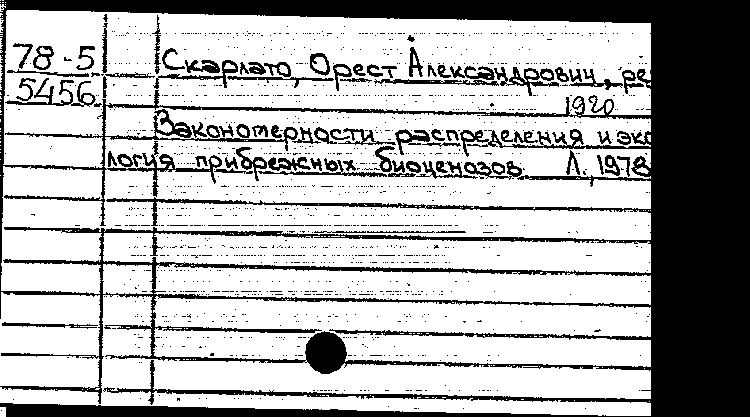 78-5 Скарлато, Орест Александрович, ре
5456
1920
Закономерности распределения и эко
логия прибрежных биоценозов Л., 1978